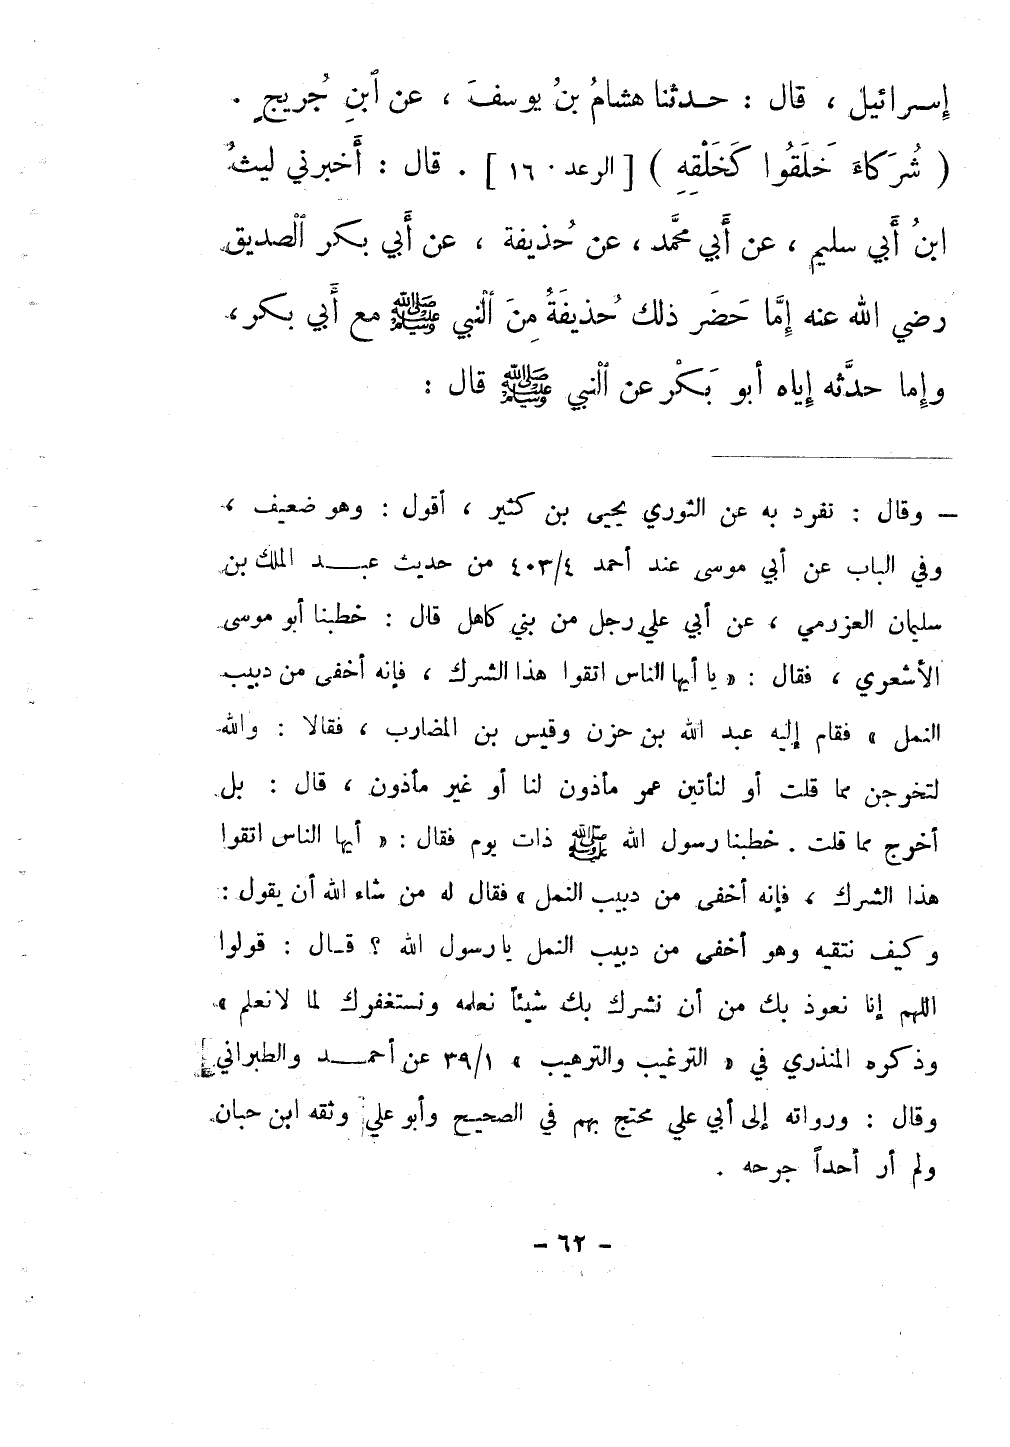 إسرائيل ، قال : حدثنا هشامُ بنُ يوسفَ ، عن ٱبنِ جُريجٍ .
( شُرَكاءَ خَلَقُوا كَخَلْقِهِ ) [ الرعد ١٦٠ ] . قال : أَخبرني ليثُ
ابنُ أَبي سليمٍ ، عن أَبي محمَّد ، عن حُذيفة ، عن أَبي بكر ٱلصديق
رضي الله عنه إِمَّا حَضَر ذلك حُذيفَةُ مِنَ ٱلنبي ﷺ مع أَبي بكر ،
وإما حدَّثه إياه أبو بَكْر عن ٱلنبي ﷺ قال :
— وقال : تفرد به عن الثوري يحيى بن كثير ، أقول : وهو ضعيف ،
وفي الباب عن أبي موسى عند أحمد ٤٠٣/٤ من حديث عبد الملك بن
سليمان العزرمي ، عن أبي علي رجل من بني كاهل قال : خطبنا أبو موسى
الأشعري ، فقال : « يا أيها الناس اتقوا هذا الشرك ، فإنه أخفى من دبيب
النمل » فقام إليه عبد الله بن حزن وقيس بن المضارب ، فقالا : والله
لتخرجن مما قلت أو لنأتين عمر مأذون لنا أو غير مأذون ، قال : بل
أخرج مما قلت . خطبنا رسول الله ﷺ ذات يوم فقال : « أيها الناس اتقوا
هذا الشرك ، فإنه أخفى من دبيب النمل » فقال له من شاء الله أن يقول :
وكيف نتقيه وهو أخفى من دبيب النمل يا رسول الله ؟ قال : قولوا
اللهم إنا نعوذ بك من أن نشرك بك شيئاً نعلمه ونستغفرك لما لا نعلم »
وذكره المنذري في « الترغيب والترهيب » ٣٩/١ عن أحمد والطبراني
وقال : ورواته إلى أبي علي محتج بهم في الصحيح وأبو علي وثقه ابن حبان
ولم أر أحداً جرحه .
- ٦٢ -